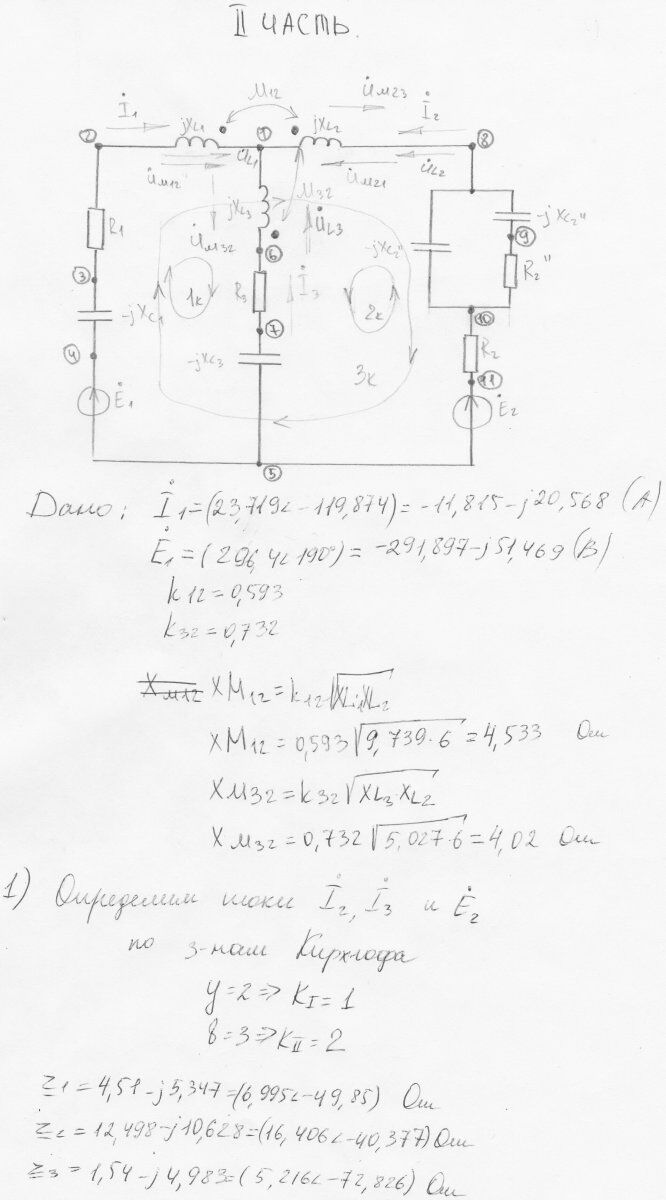 II ЧАСТЬ.
M12
U̇м23
İ1
jXL1
1
jXL2
İ2
2
8
U̇L1
U̇м12
U̇м21
U̇L2
M32
jXL3
U̇L3
U̇м32
R1
6
-jXc2"
-jXc2''
9
R2''
3
1к
R3
İ3
2к
-jXc1
7
10
4
-jXc3
R2
3к
11
Ė1
Ė2
5
Дано: İ1=(23,719∠-119,874)=-11,815-j20,568 (А)
Ė1=(296,4∠190°)=-291,897-j51,469 (В)
k12=0,593
k32=0,732
Xм12 XM12=k12√XL1XL2
XM12=0,593√9,739·6=4,533 Ом
Xм32=k32√XL3·XL2
Xм32=0,732√5,027·6=4,02 Ом
1) Определим токи İ2, İ3 и Ė2
по з-нам Кирхгофа
у=2=>KI=1
в=3=>KII=2
Z1=4,51-j5,347=(6,995∠-49,85) Ом
Z2=12,498-j10,628=(16,406∠-40,377) Ом
Z3=1,54-j4,983=(5,216∠-72,826) Ом